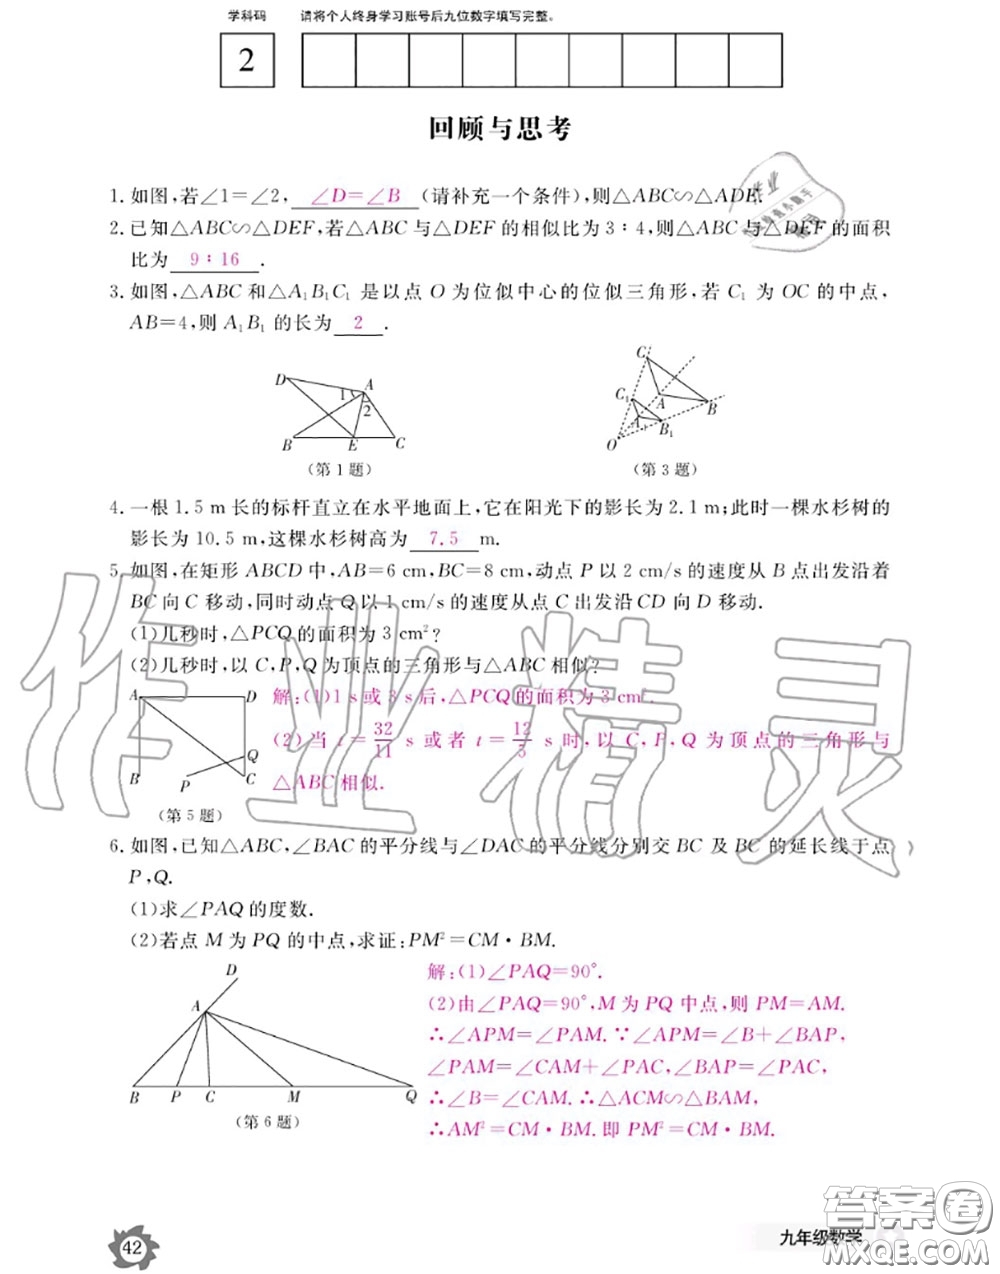 学科码 请将个人终身学习账号后九位数字填写完整。
2
回顾与思考
1.如图,若∠1=∠2, ∠D=∠B (请补充一个条件),则△ABC∽△ADE.
2.已知△ABC∽△DEF,若△ABC与△DEF的相似比为3∶4,则△ABC与△DEF的面积
比为 9∶16 .
3.如图,△ABC和△A₁B₁C₁是以点O为位似中心的位似三角形,若C₁为OC的中点,
AB=4,则A₁B₁的长为 2 .
D A 1 2 B E C
C C₁ A B A₁ B₁ O
(第1题) (第3题)
4.一根1.5 m长的标杆直立在水平地面上,它在阳光下的影长为2.1 m;此时一棵水杉树的
影长为10.5 m,这棵水杉树高为 7.5 m.
5.如图,在矩形ABCD中,AB=6 cm,BC=8 cm,动点P以2 cm/s的速度从B点出发沿着
BC向C移动,同时动点Q以1 cm/s的速度从点C出发沿CD向D移动.
(1)几秒时,△PCQ的面积为3 cm²?
(2)几秒时,以C,P,Q为顶点的三角形与△ABC相似?
A D Q B P C
(第5题)
解:(1)1 s或3 s后,△PCQ的面积为3 cm².
(2)当t=32/11 s或者t=12/5 s时,以C,P,Q为顶点的三角形与
△ABC相似.
6.如图,已知△ABC,∠BAC的平分线与∠DAC的平分线分别交BC及BC的延长线于点
P,Q.
(1)求∠PAQ的度数.
(2)若点M为PQ的中点,求证:PM²=CM·BM.
D A B P C M Q
(第6题)
解:(1)∠PAQ=90°.
(2)由∠PAQ=90°,M为PQ中点,则PM=AM.
∴∠APM=∠PAM.∵∠APM=∠B+∠BAP,
∠PAM=∠CAM+∠PAC,∠BAP=∠PAC,
∴∠B=∠CAM.∴△ACM∽△BAM,
∴AM²=CM·BM.即PM²=CM·BM.
42
九年级数学
作业精灵
答案圈
MXQE.COM